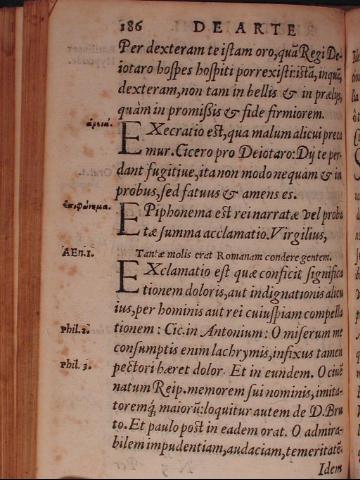 186 DE ARTE
Per dexteram te istam oro, quā Regi De-
iotaro hospes hospiti porrexisti: istā, inquā,
dexteram, non tam in bellis & in prælijs,
quàm in promissis & fide firmiorem.
ἀρειά.
EXecratio est, qua malum alicui preca
mur. Cicero pro Deiotaro: Dij te per-
dant fugitiue, ita non modo nequam & im
probus, sed fatuus & amens es.
ἐπιφώνημα.
EPiphonema est rei narratæ vel proba
tæ summa acclamatio. Virgilius,
AEn. 1.
Tantæ molis erat Romanam condere gentem.
EXclamatio est quæ conficit significa
tionem doloris, aut indignationis alicu
ius, per hominis aut rei cuiuspiam compella
Phil. 2.
tionem: Cic. in Antonium: O miserum me
consumptis enim lachrymis, infixus tamen
Phil. 3.
pectori hæret dolor. Et in eundem. O ciuē
natum Reip. memorem sui nominis, imita-
toremq́; maiorū: loquitur autem de D. Bru
to. Et paulo post in eadem orat. O admira-
bilem impudentiam, audaciam, temeritatē.
Idem